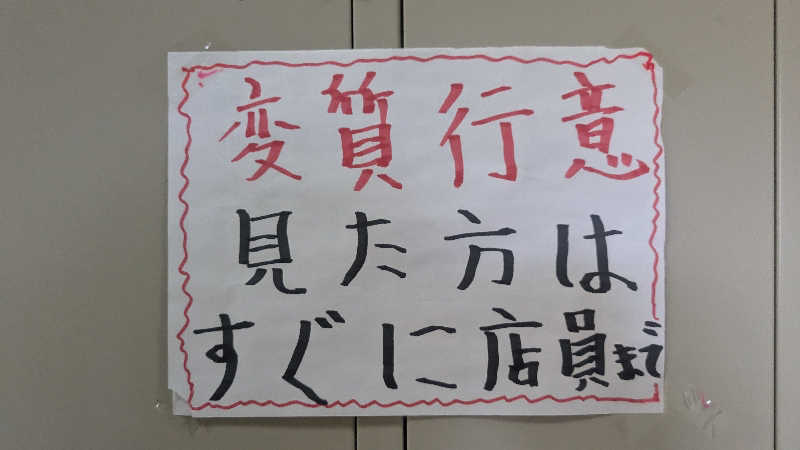 変質行意
見た方は
すぐに店員まで